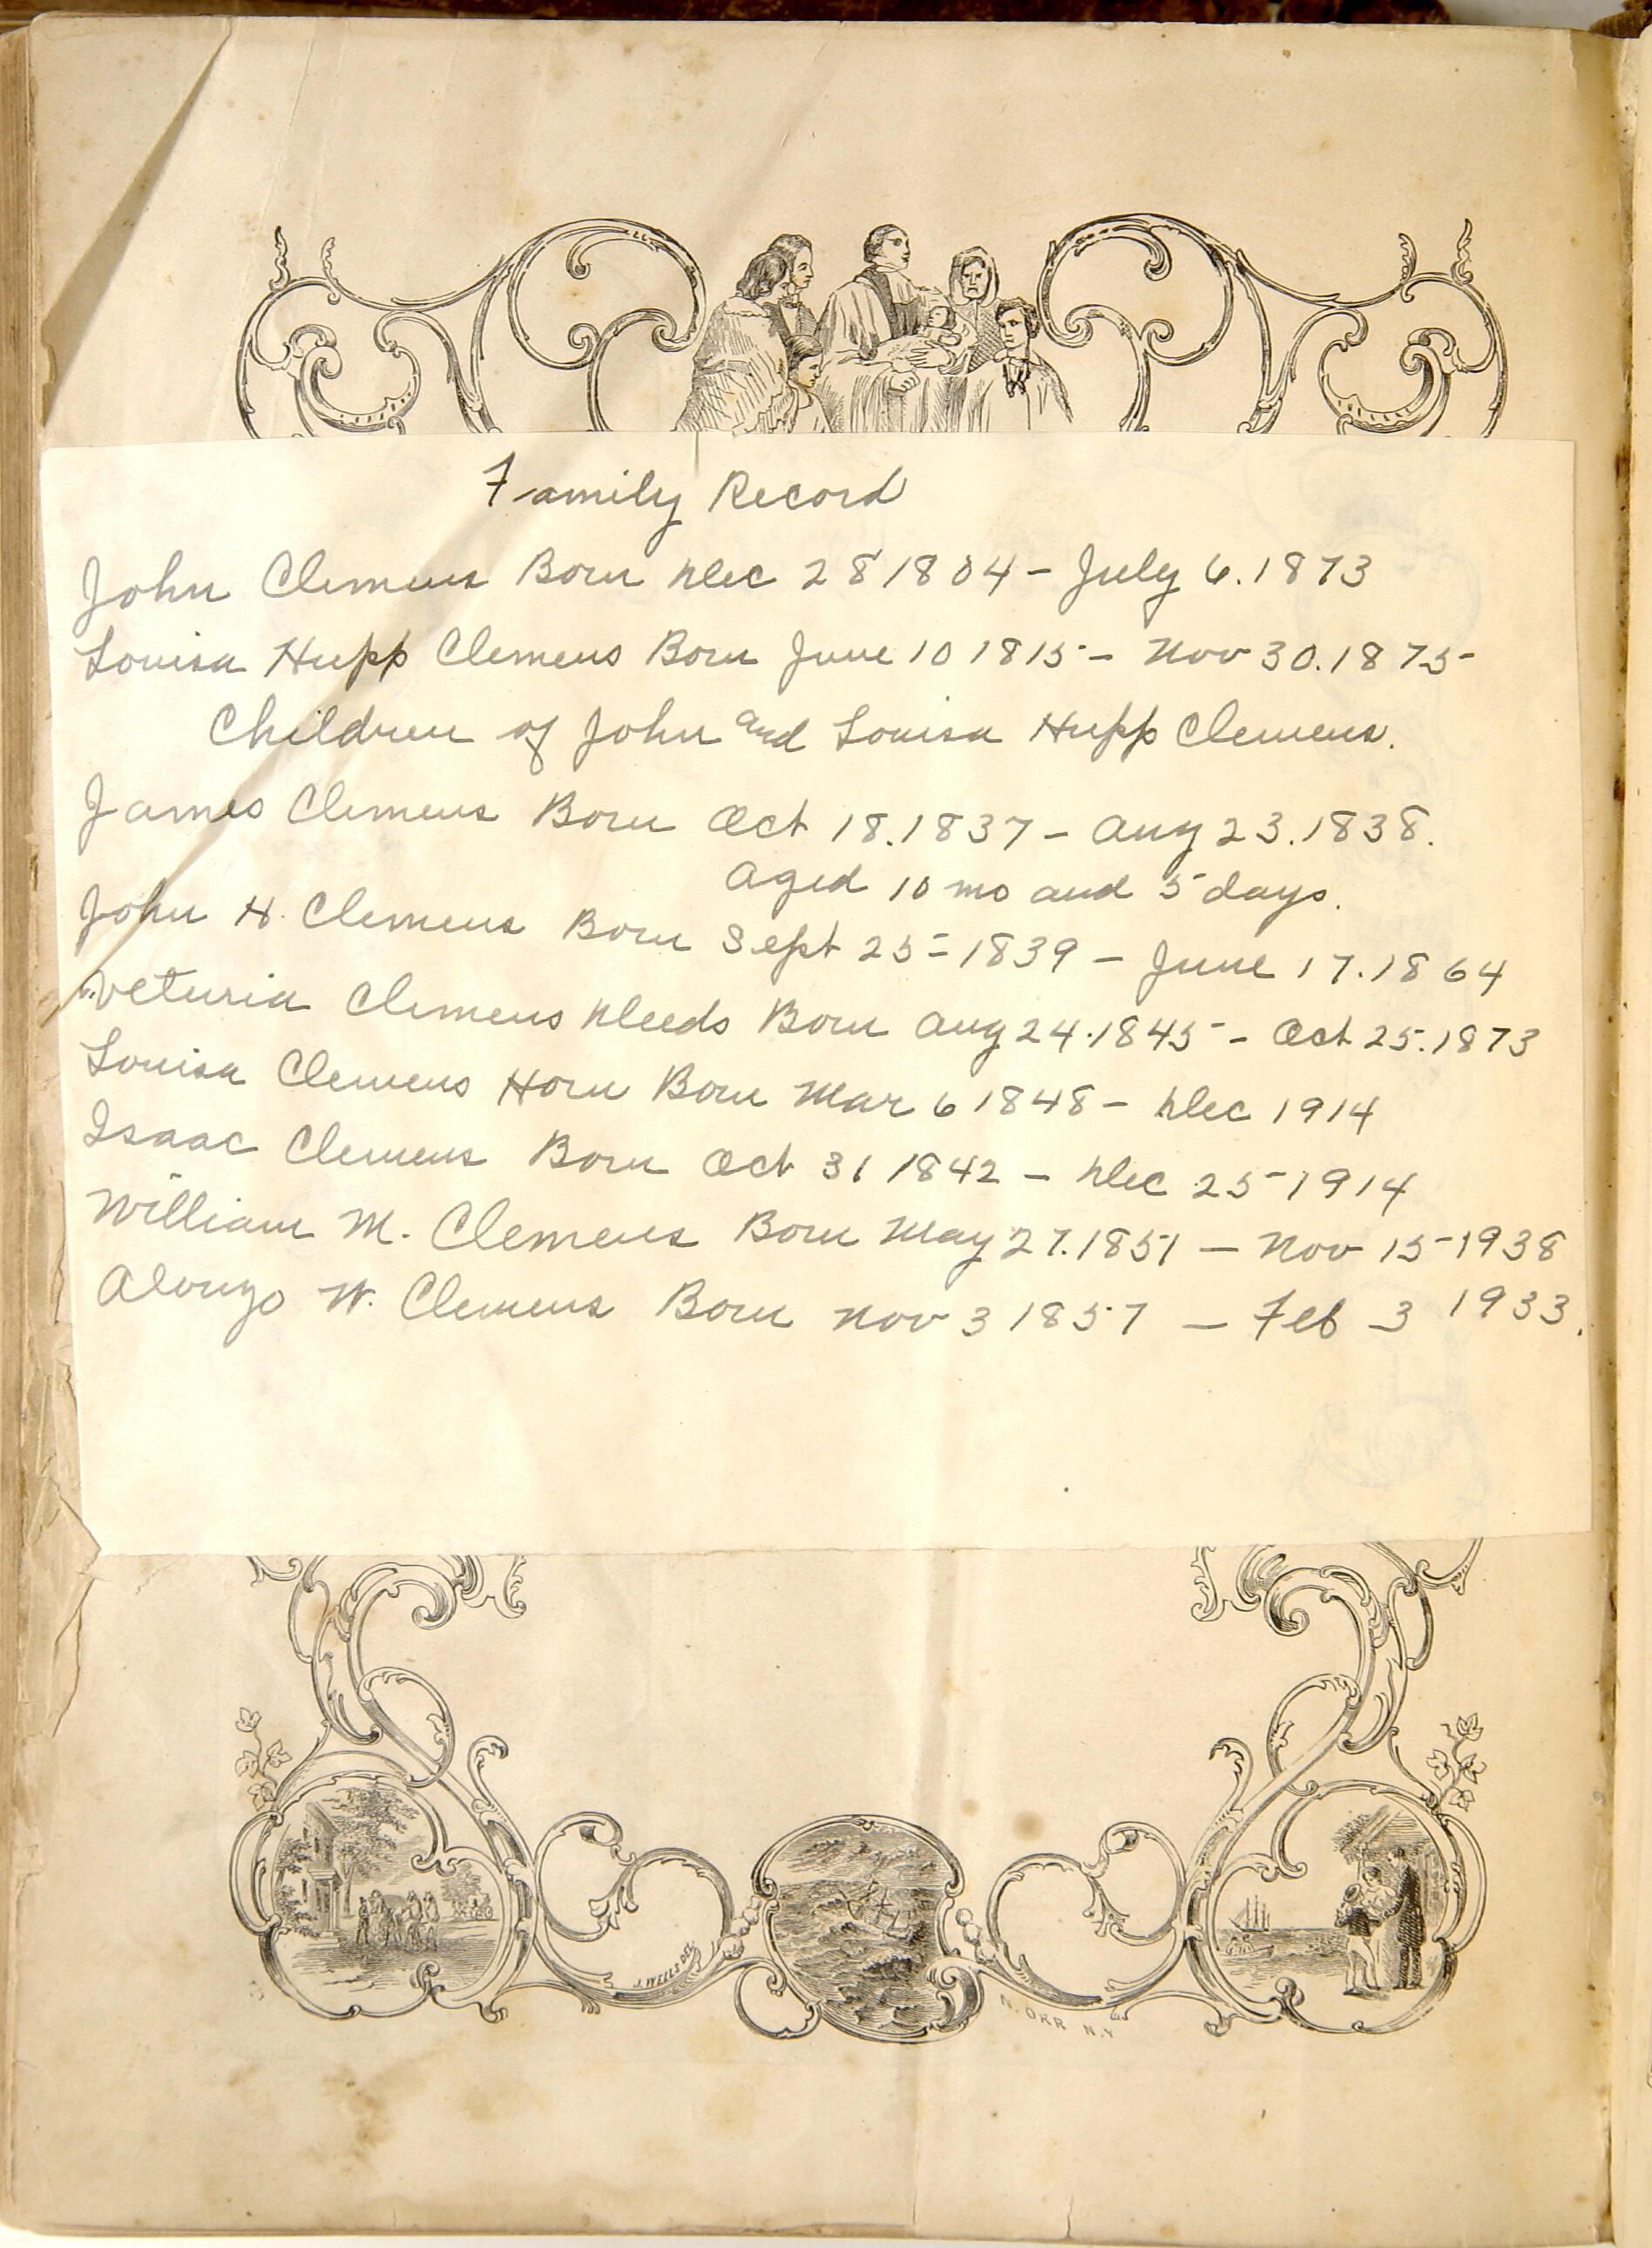 Family Record
John Clemens Born Dec 28 1804 - July 6. 1873
Louisa Hupp Clemens Born June 10 1815 - Nov 30. 1875-
Children of John and Louisa Hupp Clemens.
James Clemens Born Oct 18. 1837 - Aug 23. 1838.
Aged 10 mo and 5 days.
John H. Clemens Born Sept 25 = 1839 - June 17. 1864
Veturia Clemens Deeds Born Aug 24. 1845 - Oct 25. 1873
Louisa Clemens Horn Born Mar 6 1848 - Dec 1914
Isaac Clemens Born Oct 31 1842 - Dec 25 - 1914
William M. Clemens Born May 27. 1851 - Nov 15 - 1938
Alonzo W. Clemens Born Nov 3 1857 - Feb 3 1933.
J. WELLS DEL.
N. ORR N.Y.